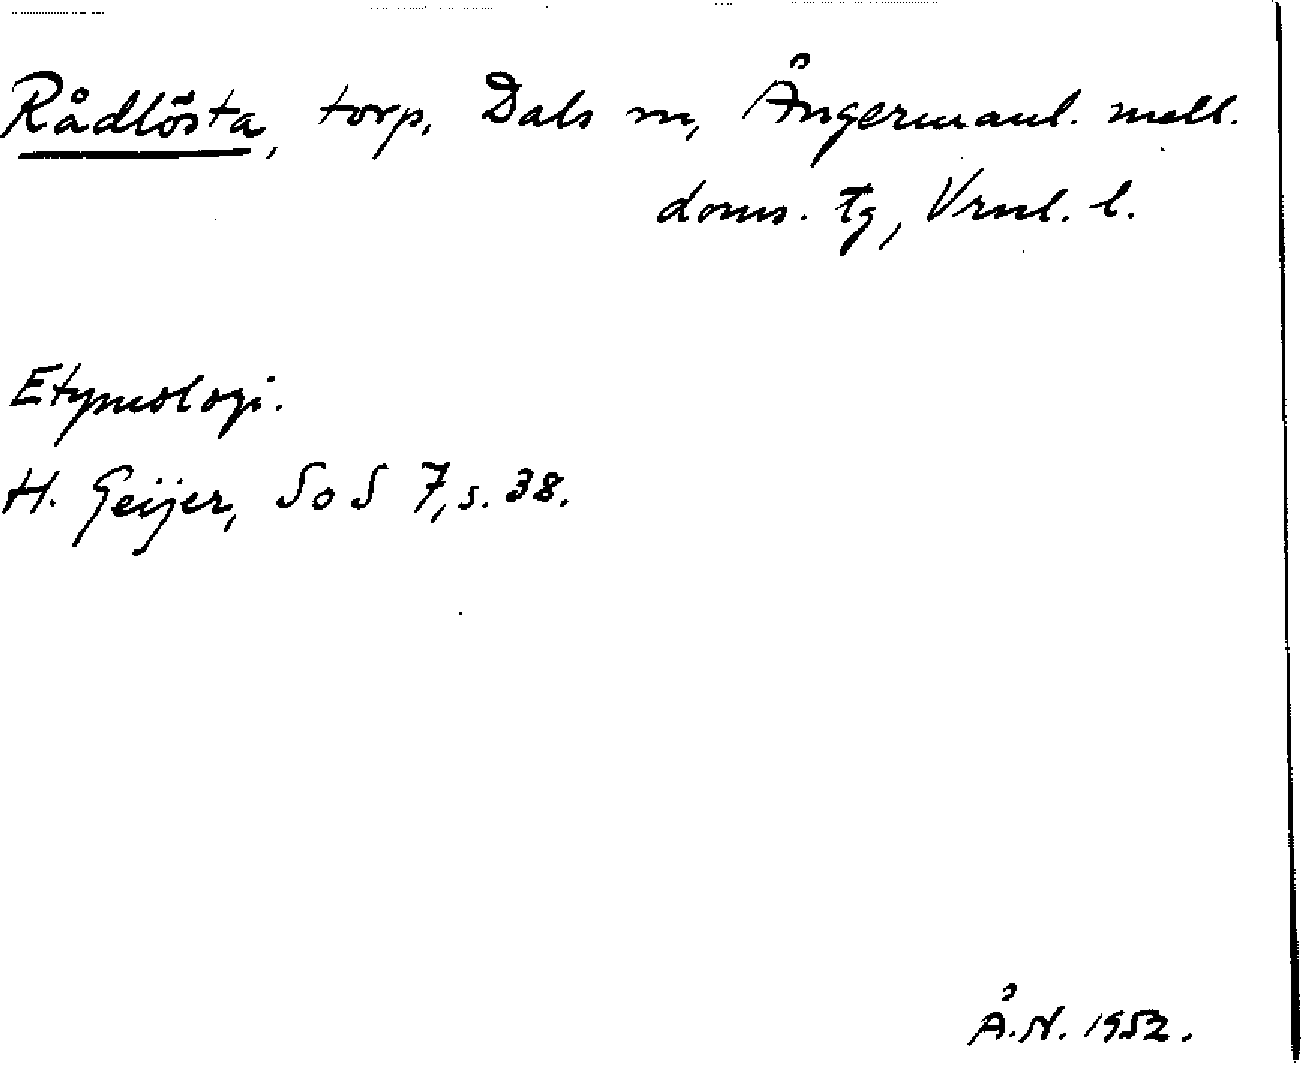 Rådlösta, torp, Dals sn, Ångermanl. mell.
doms. tg, Vrnl. l.
Etymologi.
H. Geijer, SoS 7, s. 38.
Å.N. 1952.